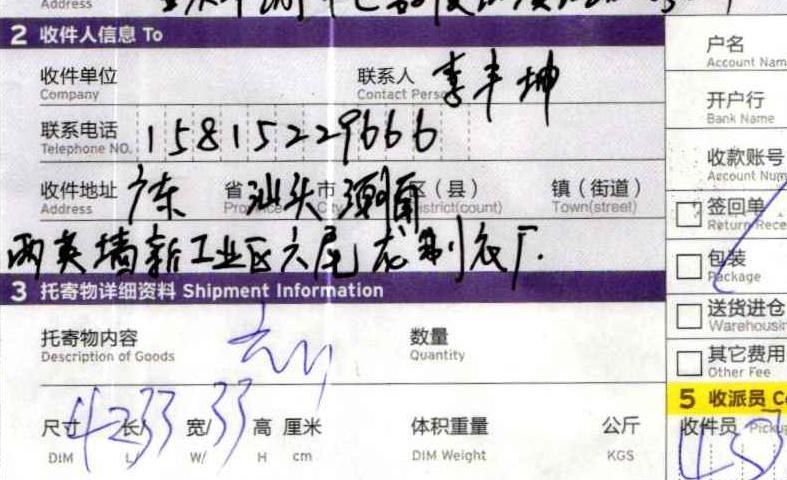 Address
2 收件人信息 To
收件单位 联系人 李丰坤
Company Contact Person
联系电话 15815229666
Telephone NO.
收件地址 广东 省 汕头 市 潮南 区（县） 镇（街道）
Address Province City District(count) Town(street)
两英墙新工业区六尾 制衣厂.
3 托寄物详细资料 Shipment Information
托寄物内容 数量
Description of Goods Quantity
尺寸 长/ 宽/ 高 厘米 体积重量 公斤
DIM L/ W/ H cm DIM Weight KGS
户名
Account Nam
开户行
Bank Name
收款账号
Account Num
签回单
Return Rece
包装
Package
送货进仓
Warehousin
其它费用
Other Fee
5 收派员 Co
收件员 Pickup